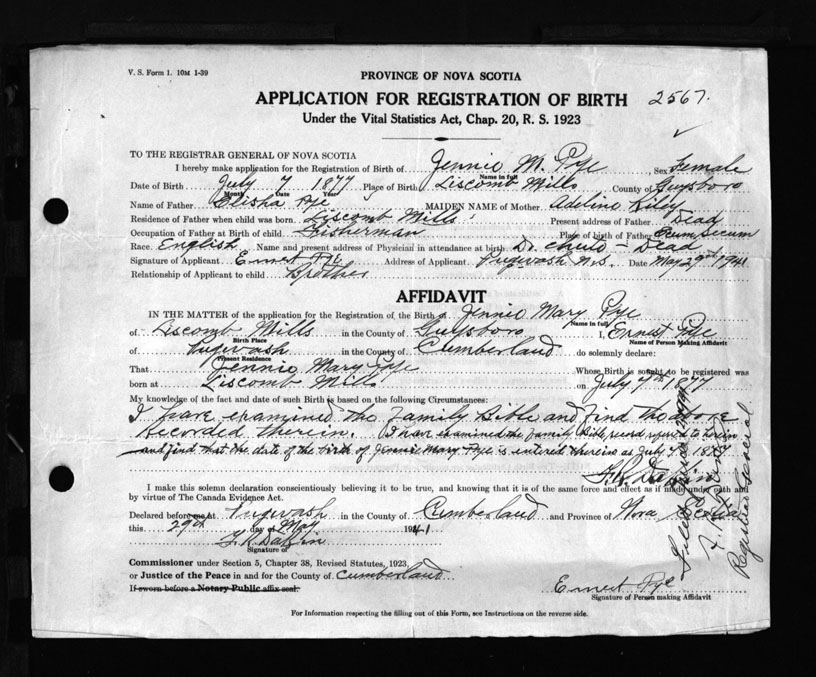 V. S. Form 1. 10M 1-39
PROVINCE OF NOVA SCOTIA
APPLICATION FOR REGISTRATION OF BIRTH 2567.
Under the Vital Statistics Act, Chap. 20, R. S. 1923
TO THE REGISTRAR GENERAL OF NOVA SCOTIA
I hereby make application for the Registration of Birth of Jennie M. Pye Sex Female
Name in full
Date of Birth July 7 1877 Place of Birth Liscomb Mills County of Guysboro
Month Date Year
Name of Father Elisha Pye MAIDEN NAME of Mother Adeline Riley
Residence of Father when child was born Liscomb Mills Present address of Father Dead
Occupation of Father at Birth of child Fisherman Place of birth of Father Rum Secum
Race. English Name and present address of Physician in attendance at birth Dr. – Dead
Signature of Applicant Ernest Pye Address of Applicant Pugwash N.S. Date May 29th 1941
Relationship of Applicant to child Brother
AFFIDAVIT
IN THE MATTER of the application for the Registration, of the Birth of Jennie Mary Pye
Name in full
of Liscomb Mills in the County of Guysboro I, Ernest Pye
Birth Place Name of Person Making Affidavit
of Pugwash in the County of Cumberland do solemnly declare:
Present Residence
That Jennie Mary Pye Whose Birth is sought to be registered was
born at Liscomb Mills on July 7th 1877
My knowledge of the fact and date of such Birth is based on the following Circumstances:
I have examined the Family Bible and find the above
recorded therein. I have examined the Family Bible record referred to herein
and find that the date of the birth of Jennie Mary Pye is entered therein as July 7, 1877
F. R. Dakin
I make this solemn declaration conscientiously believing it to be true, and knowing that it is of the same force and effect as if made under oath and
by virtue of The Canada Evidence Act.
Declared before me at Pugwash in the County of Cumberland and Province of Nova Scotia
this 29th day of May 1941
F. R. Dakin
Signature of
Commissioner under Section 5, Chapter 38, Revised Statutes, 1923,
or Justice of the Peace in and for the County of Cumberland
If sworn before a Notary Public affix seal.
Ernest Pye
Signature of Person making Affidavit
For Information respecting the filling out of this Form, see Instructions on the reverse side.
Registrar General